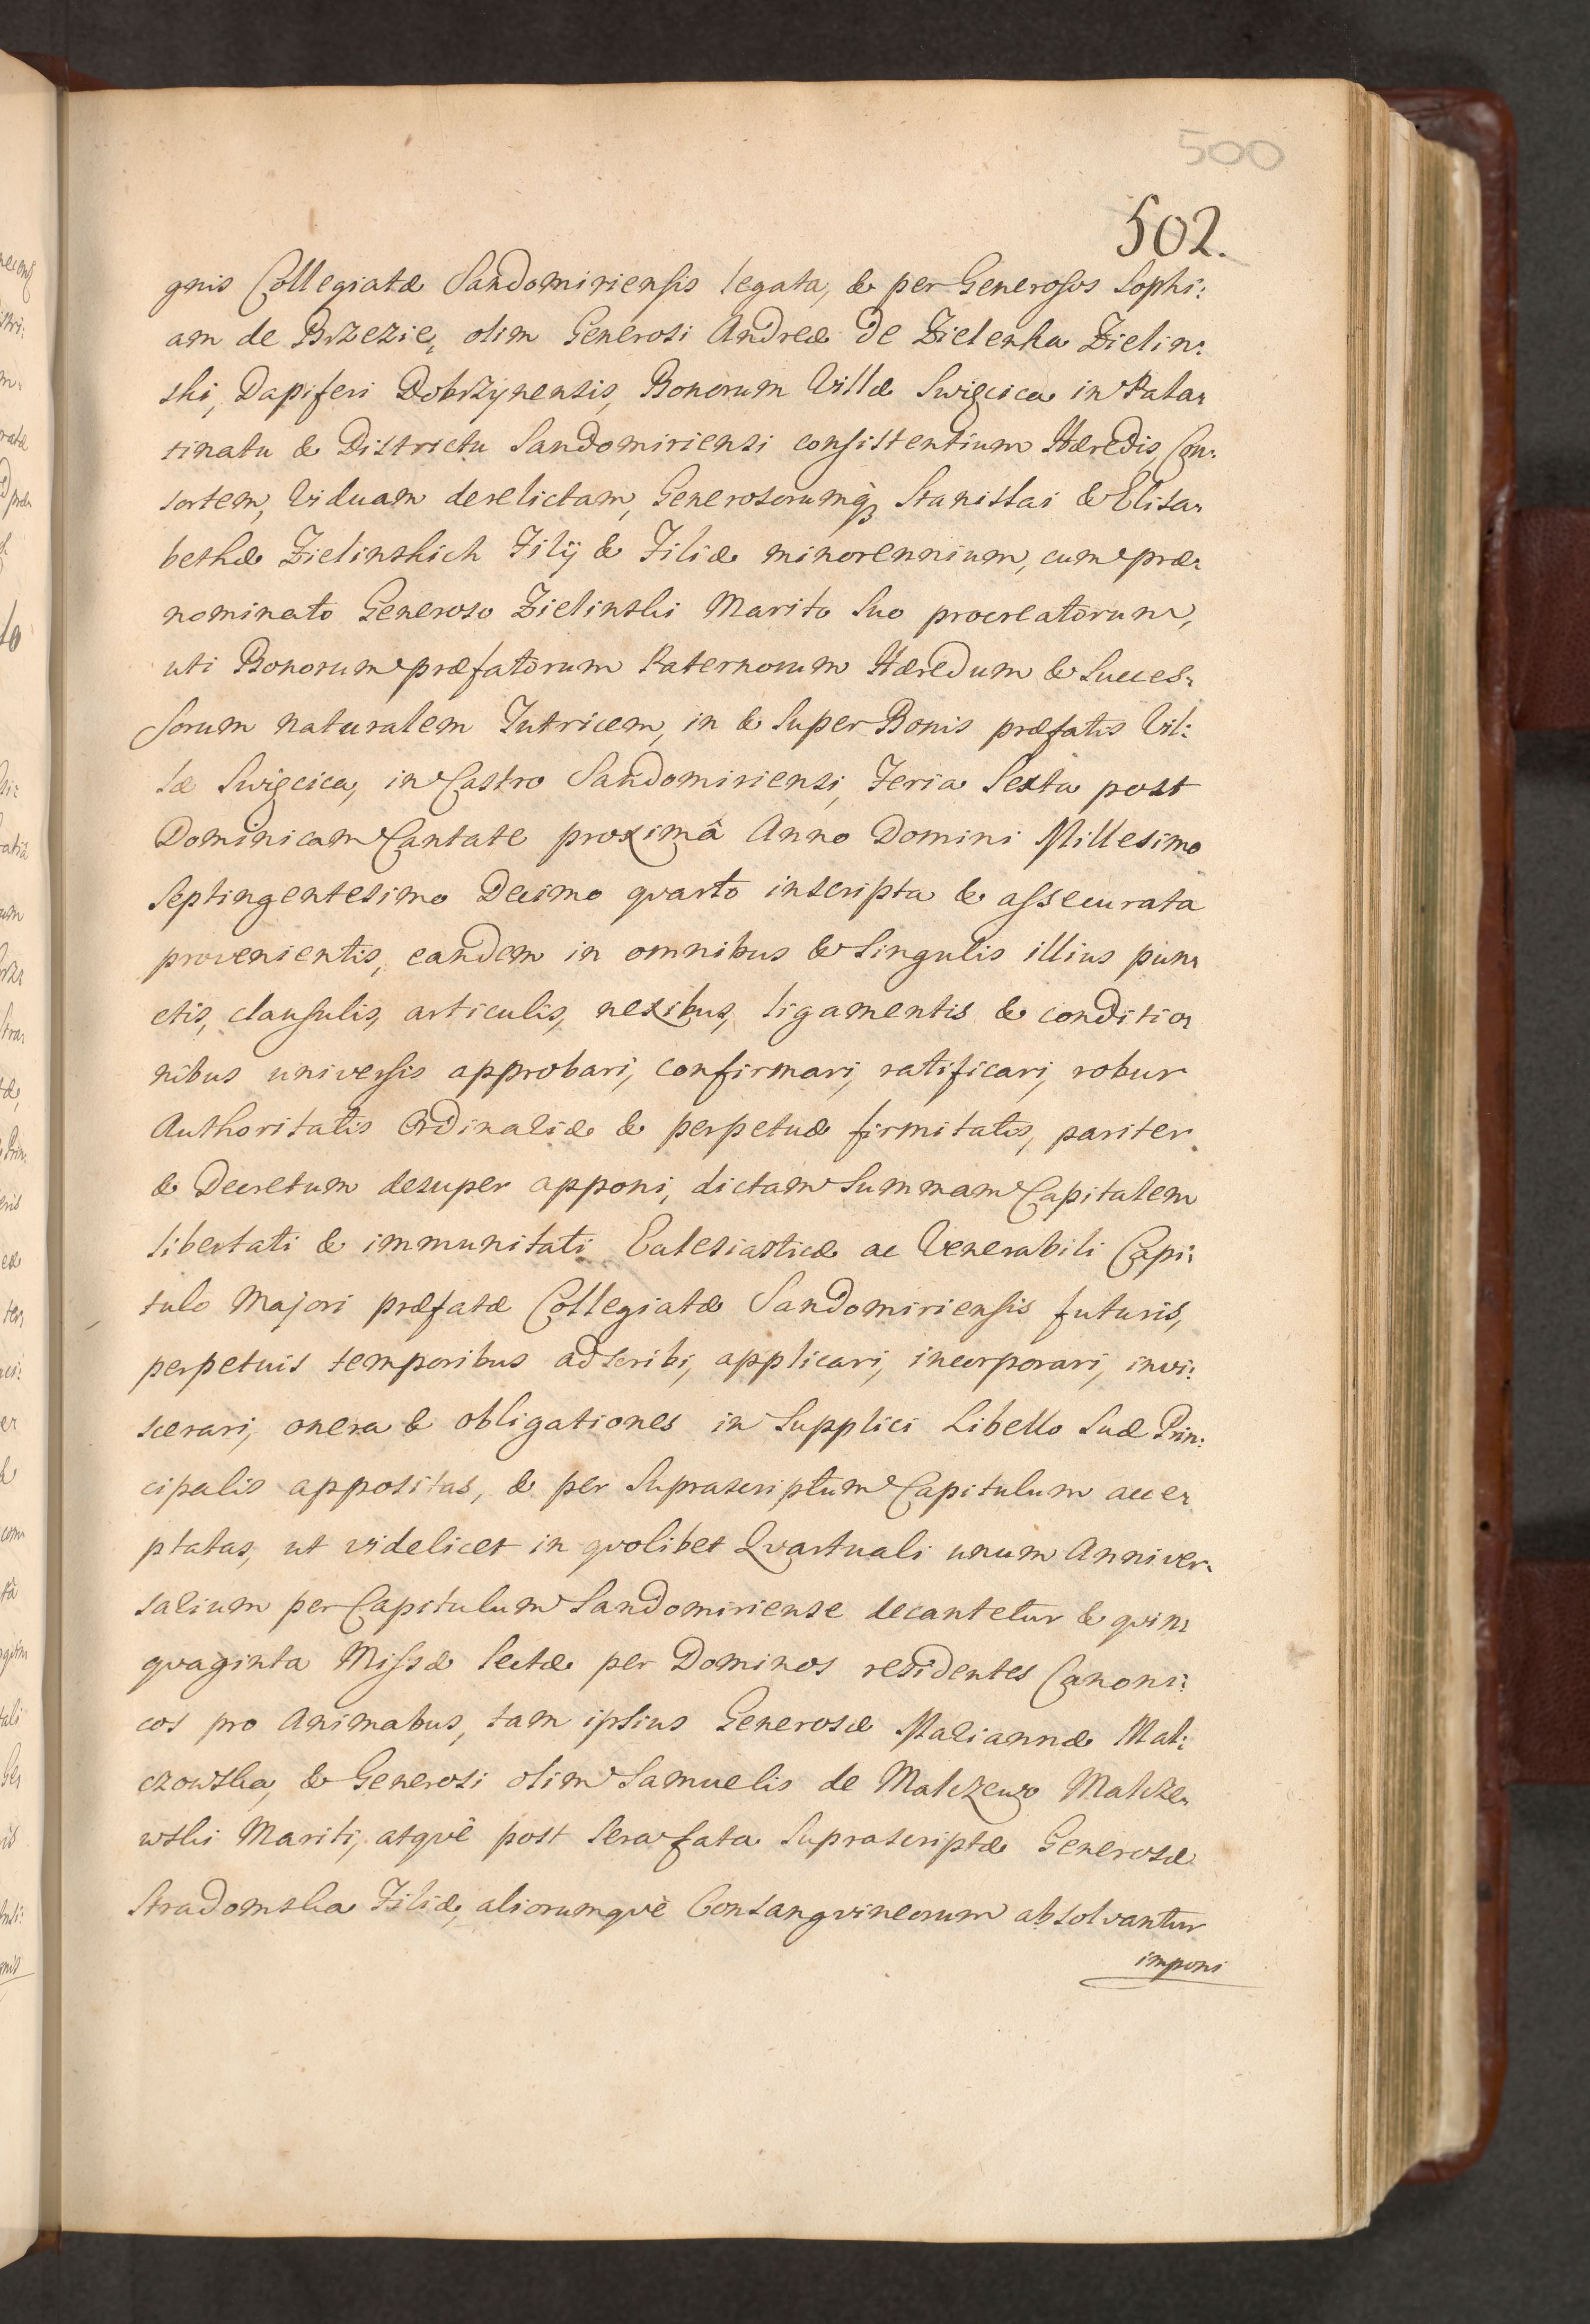 500
502.
gnis Collegiatæ Sandomiriensis legata, & per Generosos Sophi:
am de Brzezie, olim Generosi Andreæ de Zielenka Zielin:
ski, Dapiferi Dobrzynensis, Bonorum Villæ Swięcica in Pala:
tinatu & Districtu Sandomiriensi consistentium Hæredis, Con:
sortem, Viduam derelictam, Generosorumq; Stanislai & Elisa:
bethæ Zielinskich Filij & Filiæ minorennium, cum præ:
nominato Generoso Zielinski Marito Suo procreatorum,
uti Bonorum præfatorum Paternorum Hæredum & Succes:
sorum naturalem Tutricem, in & Super Bonis præfatis Vil:
læ Swięcica, in Castro Sandomiriensi, Feria Sexta post
Dominicam Cantate proximâ Anno Domini Millesimo
Septingentesimo Decimo quarto inscripta & assecurata
provenientis, eandem in omnibus & Singulis illius pun:
ctis, clausulis, articulis, nexibus, ligamentis & conditio:
nibus universis approbari, confirmari, ratificari, robur
Authoritatis Ordinariæ & perpetuæ firmitatis, pariter
& Decretum desuper apponi, dictam Summam Capitalem
libertati & immunitati Eclesiasticæ ac Venerabili Capi:
tulo Majori præfatæ Collegiatæ Sandomiriensis futuris,
perpetuis temporibus adscribi, applicari, incorporari, invi:
scerari, onera & obligationes in Supplici Libello Suæ Prin:
cipalis appositas, & per Suprascriptum Capitulum acce:
ptatas, ut videlicet in quolibet Quartuali unum Anniver:
sarium per Capitulum Sandomiriense decantetur & quin:
quaginta Missæ lectæ per Dominos residentes Canoni:
cos pro Animabus, tam ipsius Generosæ Mariannæ Mal:
czowska, & Generosi olim Samuelis de Malczewo Malcze:
wski Mariti, atquè post Sera fata Suprascriptæ Generosæ
Stradomska Filiæ, aliorumquè Consangvineorum absolvantur
imponi